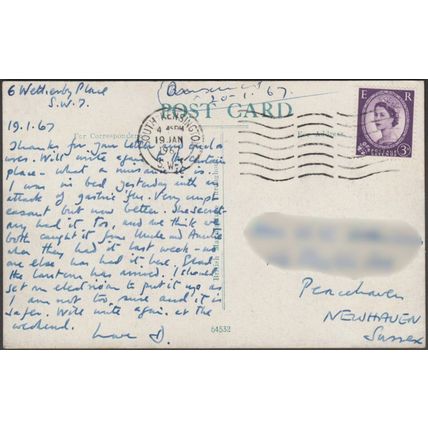 6 Wetherby Place
S.W.7.
(Answered
20-1.67.
POST CARD
For Correspondence
For Address
SOUTH KENSINGTON
19 JAN
1967
S.W.7
E R
POSTAGE REVENUE
3D
19.1.67
Thanks for your letter and good
wishes. Will write again
place - what a nuisance it is.
I was in bed yesterday with an
attack of gastric flu. Very unpl-
easant but now better. The secret-
ary had it too, and we think we
both caught it from Uncle and Auntie
when they had it last week - no
one else has had it here. Glad
the lantern has arrived. I should
get an electrician to put it up as
I am not too sure and it is
safer. Will write again at the
weekend.
Love D.
54532
Peacehaven
NEWHAVEN
Sussex